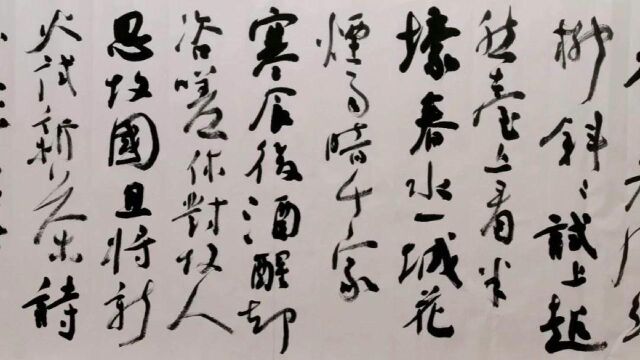 柳斜〻試上超
然臺上看半
壕春水一城花
煙雨暗千家
寒食後酒醒却
咨嗟休對故人
思故國且將新
火試新茶詩